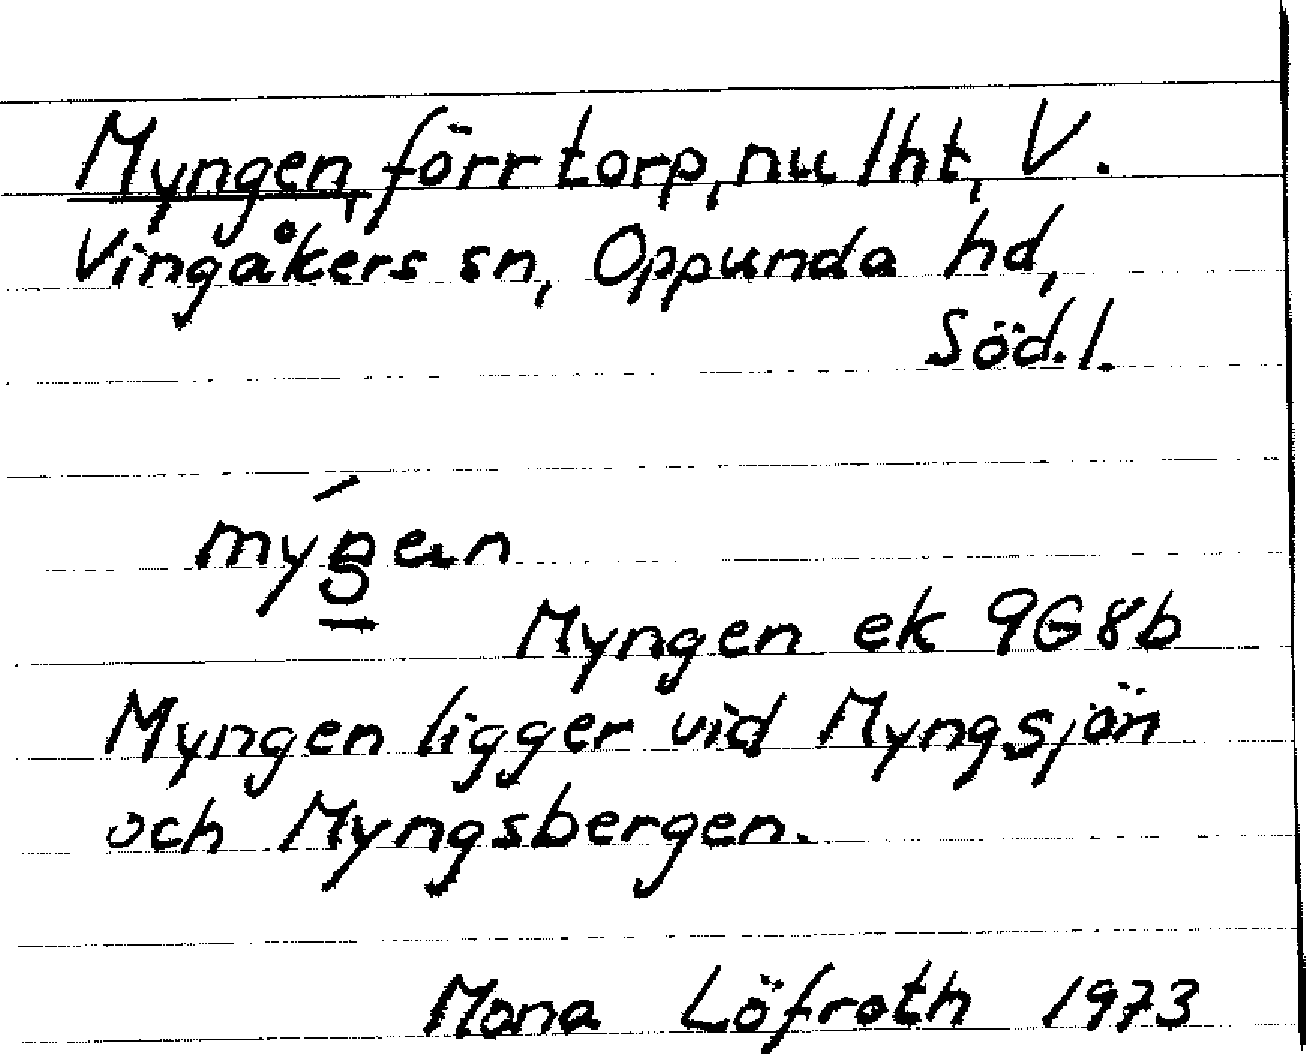 Myngen, förr torp, nu lht, V.
Vingåkers sn, Oppunda hd,
Söd.l.
Myngen ek 9G8b
Myngen ligger vid Myngsjön
och Myngsbergen.
Mona Löfroth 1973